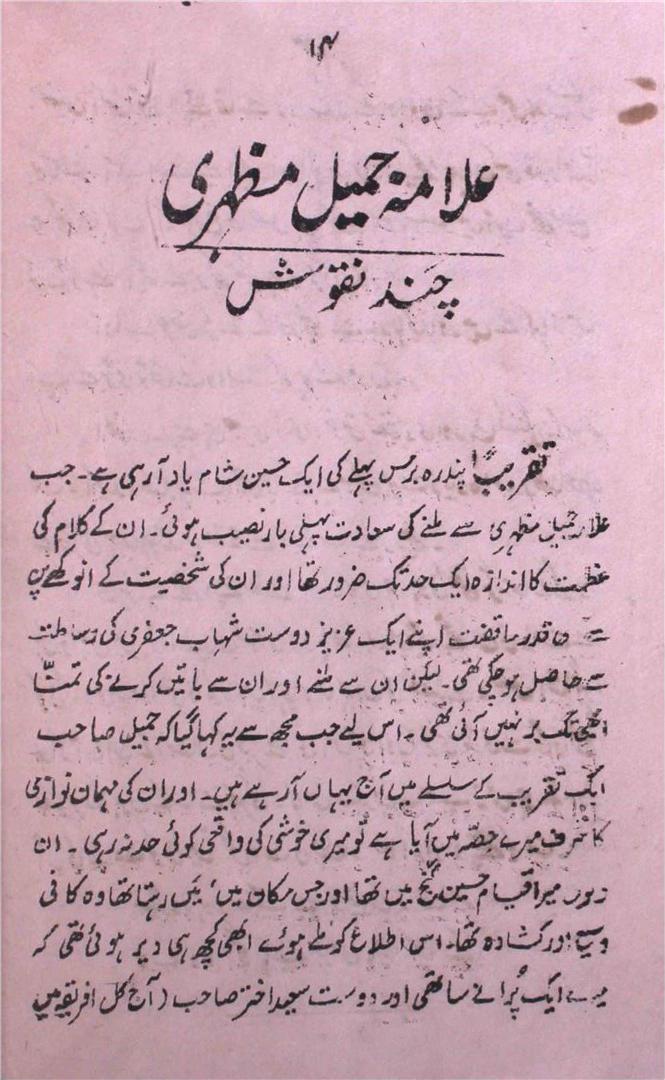 ۱۴
علامہ جمیل مظہری
چند نقوش
تقریباً پندرہ برس پہلے کی ایک حسین شام یاد آرہی ہے۔ جب
علامہ جمیل مظہری سے ملنے کی سعادت پہلی بار نصیب ہوئی۔ ان کے کلام کی
عظمت کا اندازہ ایک حد تک ضرور تھا اور ان کی شخصیت کے انوکھے پن
سے واقفیت اپنے ایک عزیز دوست شہاب جعفری کی وساطت
سے حاصل ہوچکی تھی۔ لیکن ان سے ملنے اور ان سے باتیں کرنے کی تمنّا
ابھی تک بر نہیں آئی تھی۔ اس لیے جب مجھ سے یہ کہا گیا کہ جمیل صاحب
ایک تقریب کے سلسلے میں آج یہاں آرہے ہیں۔ اور ان کی مہمان نوازی
کا شرف میرے حصّہ میں آیا ہے تو میری خوشی کی واقعی کوئی حد نہ رہی۔ ان
دنوں میرا قیام حسین گنج میں تھا اور جس مکان میں، میں رہتا تھا وہ کافی
وسیع اور کشادہ تھا۔ اس اطلاع کو ملے ہوئے ابھی کچھ ہی دیر ہوئی تھی کہ
میرے ایک پُرانے ساتھی اور دوست سعید اختر صاحب (آج کل افریقہ میں